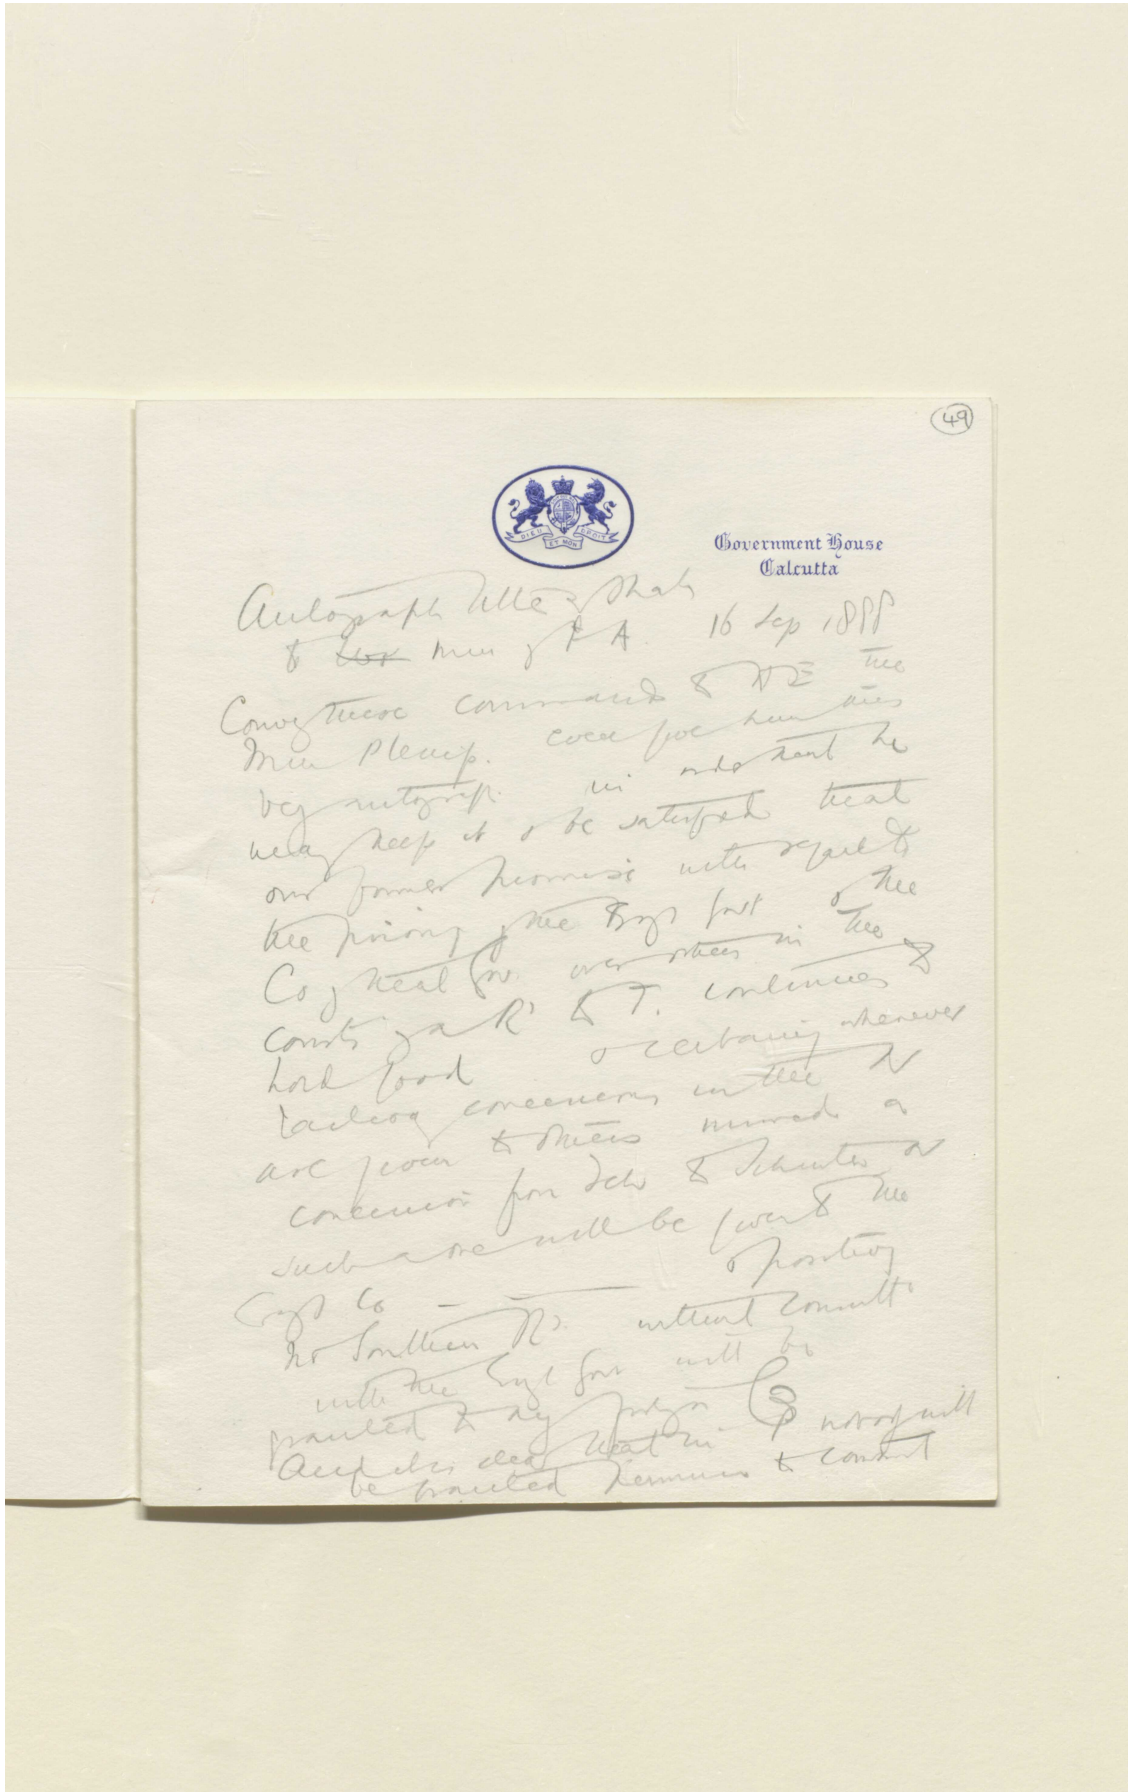 49
DIEU ET MON DROIT
Government House
Calcutta
Autograph letter of Shah
to Min of F A. 16 Sep 1888
Convey these commands to H E the
Min Plenip. even give him this
very autograph in order that he
may keep it & be satisfied that
our former promise with regard to
the priority of the Engl Govt & the
Co of that Gov. over others in the
constn of a R to T. continues to
hold good & certainly whenever
railway concessions in the N
are given to others immed. a
concession from Teh to Shuster or
such a one will be given to the
Engl Co — — — & positively
no Southern Ry. without consultn
with the Engl Govt will be
granted to any foreign Co
And it is clear that in nobody will
be granted permission to construct